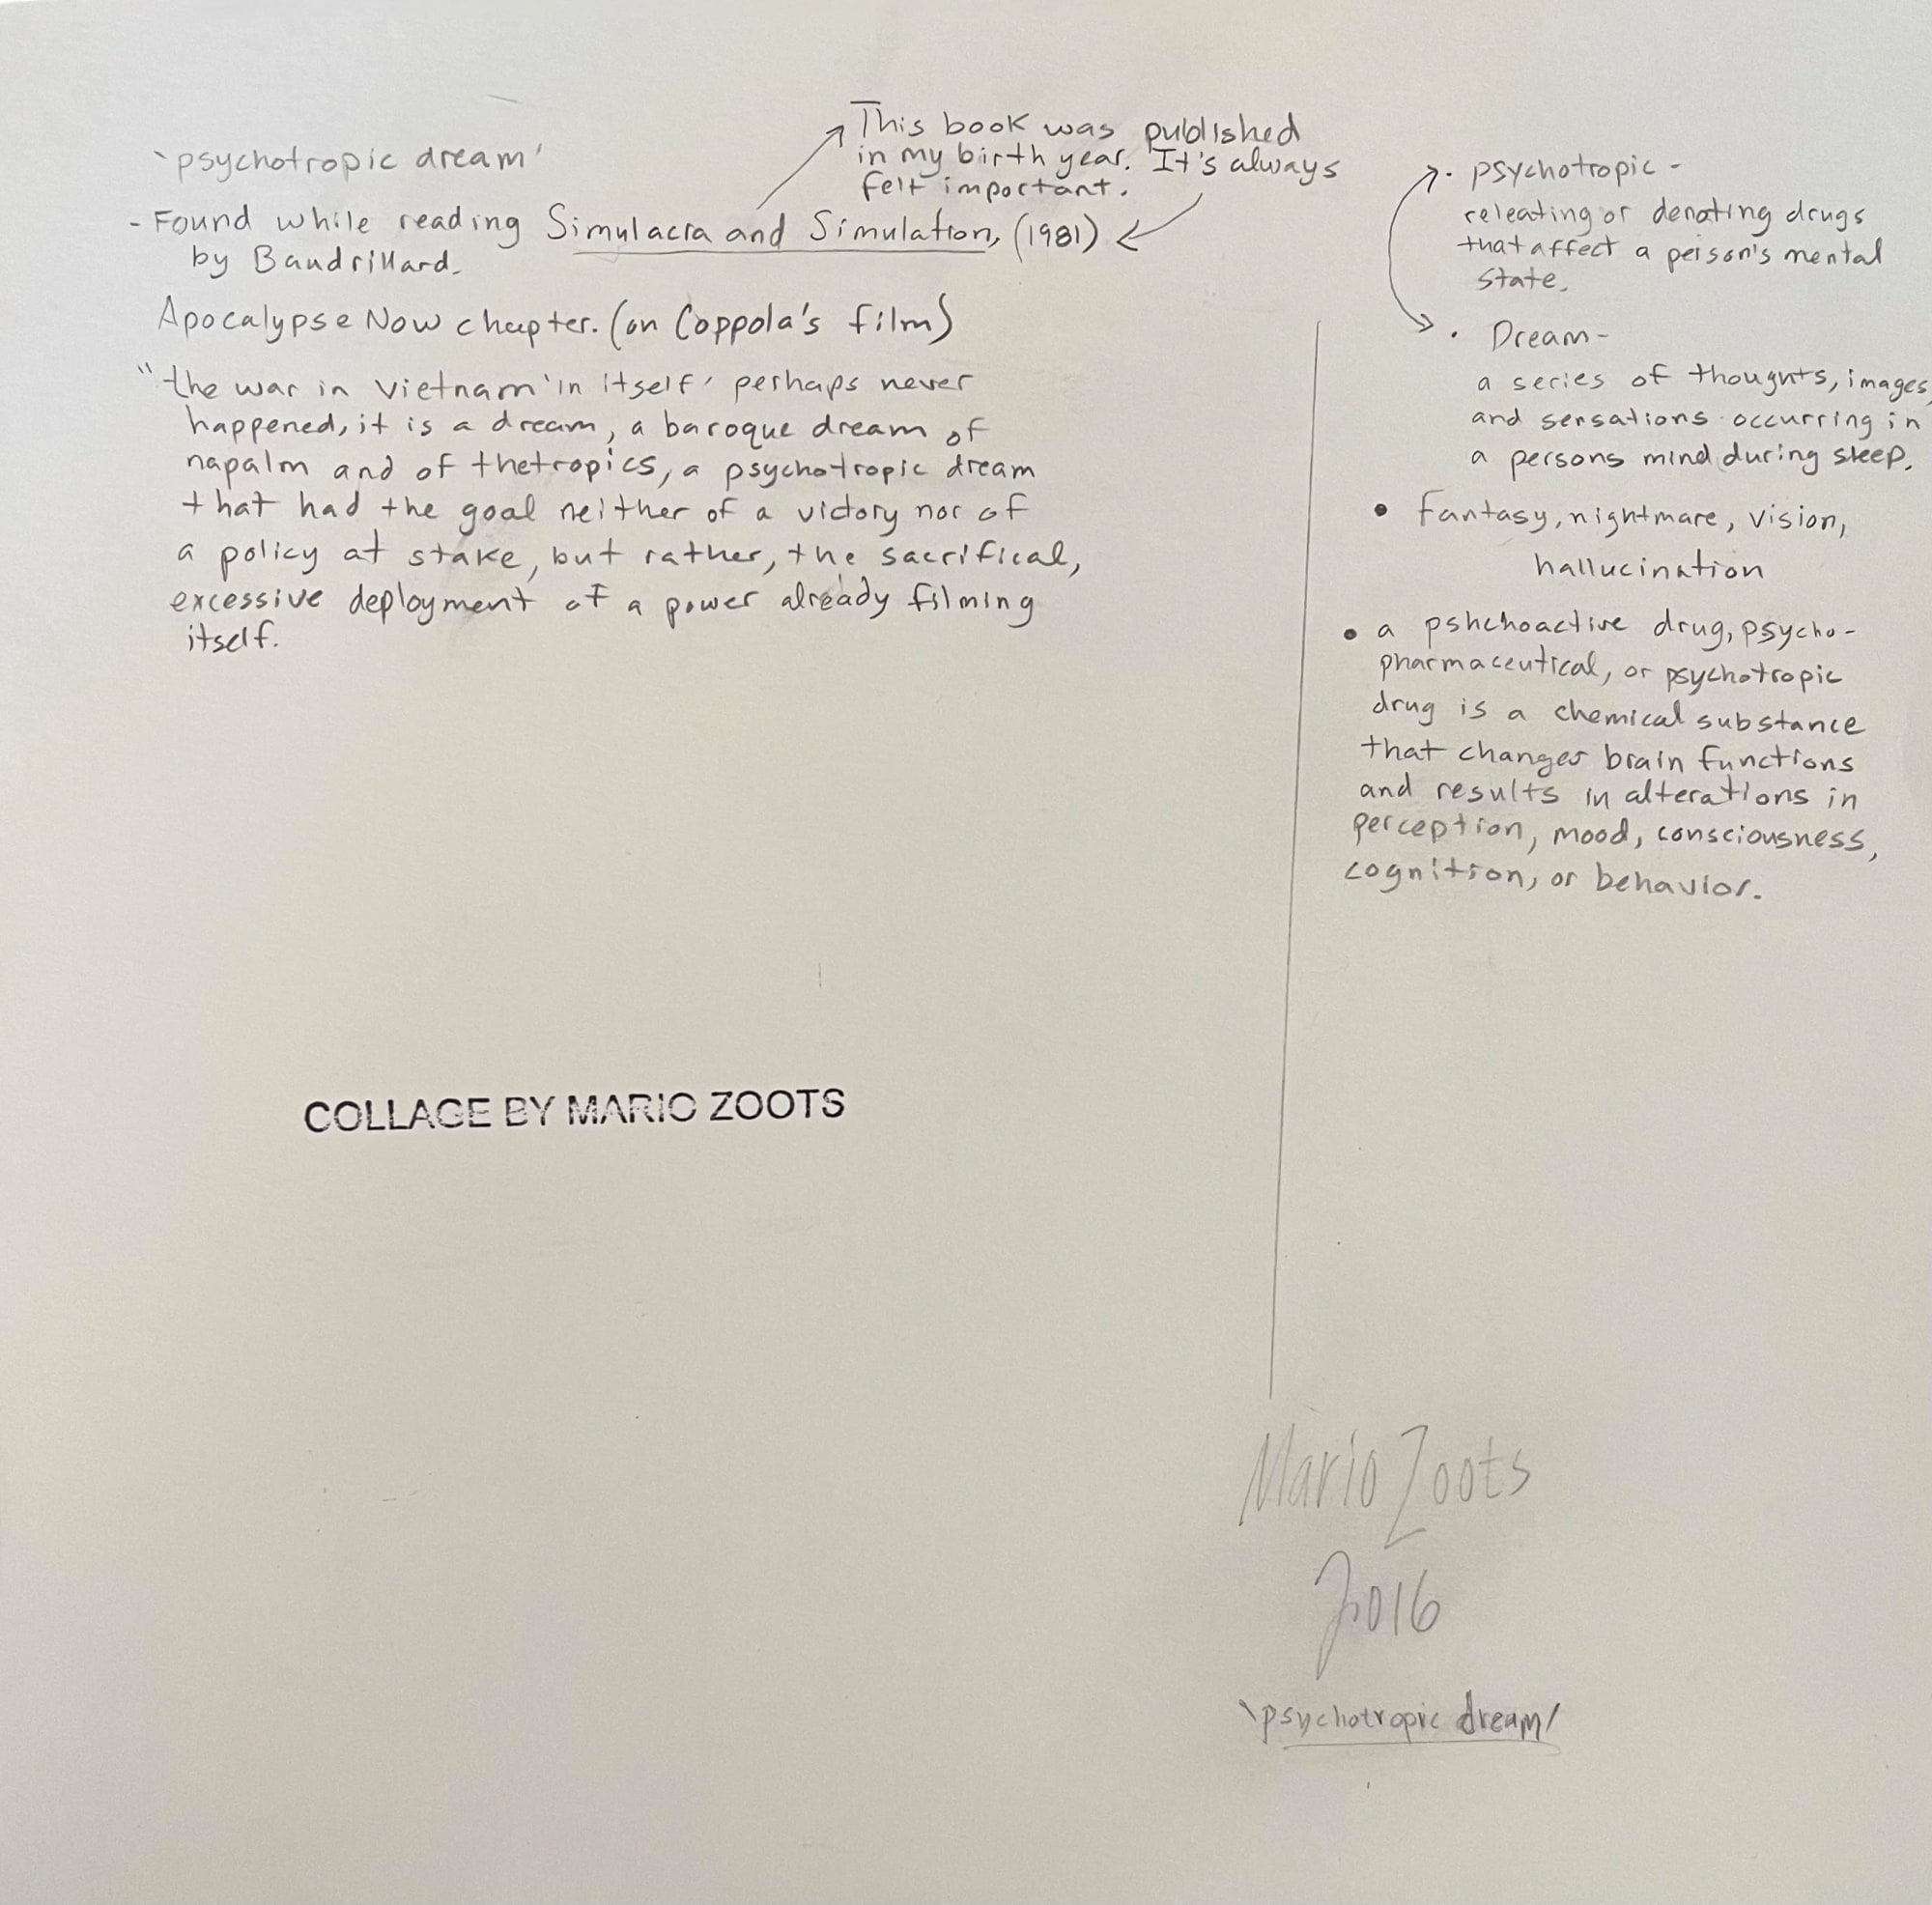 'psychotropic dream'
This book was published
in my birth year. It's always
felt important.
- Found while reading Simulacra and Simulation, (1981)
by Baudrillard.
Apocalypse Now chapter. (on Coppola's film)
"the war in Vietnam 'in itself' perhaps never
happened, it is a dream, a baroque dream of
napalm and of thetropics, a psychotropic dream
that had the goal neither of a victory nor of
a policy at stake, but rather, the sacrifical,
excessive deployment of a power already filming
itself.
• psychotropic -
releating or denoting drugs
that affect a person's mental
state.
• Dream -
a series of thoughts, images,
and sensations occurring in
a persons mind during sleep.
• fantasy, nightmare, vision,
hallucination
• a pshchoactive drug, psycho-
pharmaceutical, or psychotropic
drug is a chemical substance
that changes brain functions
and results in alterations in
perception, mood, consciousness,
cognition, or behavior.
COLLAGE BY MARIO ZOOTS
Mario Zoots
2016
\psychotropic dream/